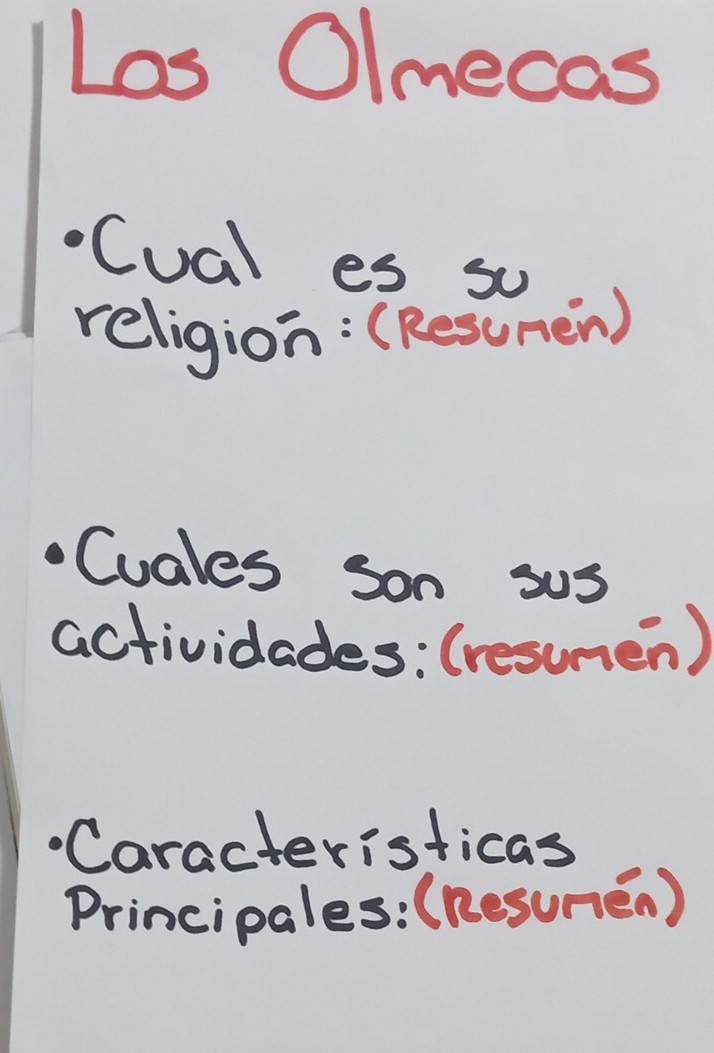 Los Olmecas
•Cual es su
religión: (Resumén)
•Cuales son sus
actividades: (resumén)
•Características
Principales: (Resumén)